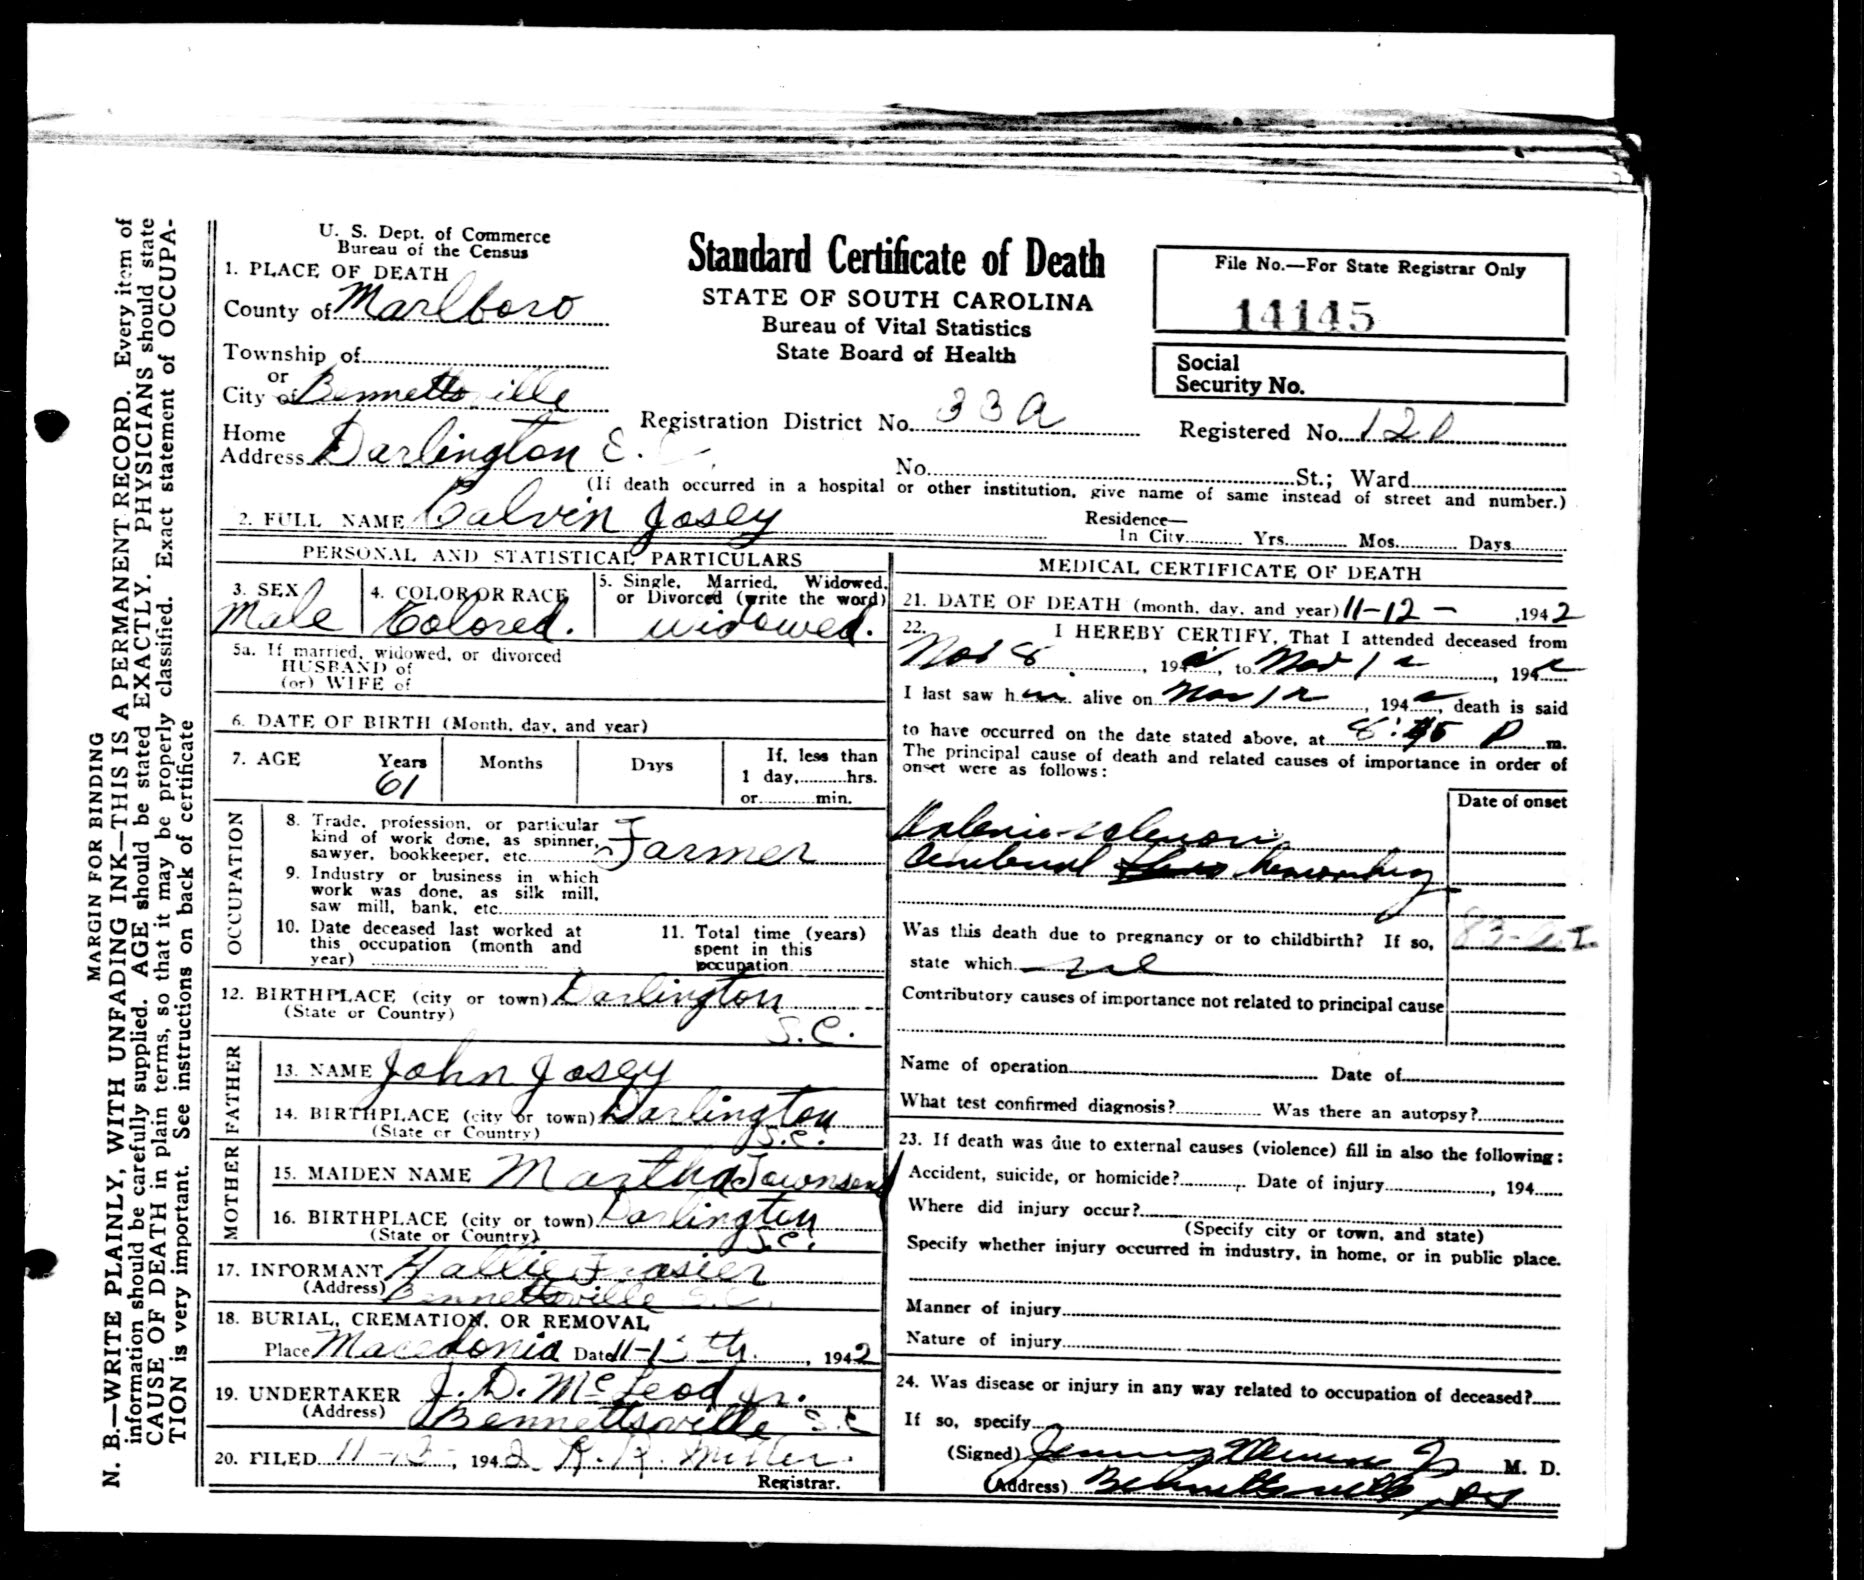 MARGIN FOR BINDING
N. B.—WRITE PLAINLY, WITH UNFADING INK—THIS IS A PERMANENT RECORD. Every item of
information should be carefully supplied. AGE should be stated EXACTLY. PHYSICIANS should state
CAUSE OF DEATH in plain terms, so that it may be properly classified. Exact statement of OCCUPA-
TION is very important. See instructions on back of certificate
U. S. Dept. of Commerce
Bureau of the Census
Standard Certificate of Death
STATE OF SOUTH CAROLINA
Bureau of Vital Statistics
State Board of Health
File No.—For State Registrar Only
14145
Social
Security No.
1. PLACE OF DEATH
County of Marlboro
Township of
or
City of Bennettsville
Home
Address Darlington
Registration District No. 33A
Registered No.
No. St.; Ward
(If death occurred in a hospital or other institution, give name of same instead of street and number.)
2. FULL NAME Calvin Josey
Residence—
In City Yrs. Mos. Days
PERSONAL AND STATISTICAL PARTICULARS
3. SEX
Male
4. COLOR OR RACE
Colored.
5. Single, Married, Widowed,
or Divorced (write the word)
widowed.
5a. If married, widowed, or divorced
HUSBAND of
(or) WIFE of
6. DATE OF BIRTH (Month, day, and year)
7. AGE
Years
61
Months
Days
If less than
1 day, hrs.
or min.
OCCUPATION
8. Trade, profession, or particular
kind of work done, as spinner,
sawyer, bookkeeper, etc. Farmer
9. Industry or business in which
work was done, as silk mill,
saw mill, bank, etc.
10. Date deceased last worked at
this occupation (month and
year)
11. Total time (years)
spent in this
occupation
12. BIRTHPLACE (city or town) Darlington
(State or Country) S.C.
FATHER
13. NAME John Josey
14. BIRTHPLACE (city or town) Darlington
(State or Country) S.C.
MOTHER
15. MAIDEN NAME Martha Townsend
16. BIRTHPLACE (city or town) Darlington
(State or Country) S.C.
17. INFORMANT Hallie Frasier
(Address) Bennettsville S.C.
18. BURIAL, CREMATION, OR REMOVAL
Place Macedonia Date 11-15th, 1942
19. UNDERTAKER J. D. McLeod Jr.
(Address) Bennettsville S.C
20. FILED 1942 R. R. Miller.
Registrar.
MEDICAL CERTIFICATE OF DEATH
21. DATE OF DEATH (month, day, and year) 11-12-, 1942
22. I HEREBY CERTIFY, That I attended deceased from
Nov 8, 1942, to Nov 12, 1942
I last saw him alive on Nov 12, 1942, death is said
to have occurred on the date stated above, at P m.
The principal cause of death and related causes of importance in order of
onset were as follows:
Date of onset
Cerebral hemorrhage
Was this death due to pregnancy or to childbirth? If so,
state which no
Contributory causes of importance not related to principal cause
Name of operation Date of
What test confirmed diagnosis? Was there an autopsy?
23. If death was due to external causes (violence) fill in also the following:
Accident, suicide, or homicide? Date of injury, 194
Where did injury occur?
(Specify city or town, and state)
Specify whether injury occurred in industry, in home, or in public place.
Manner of injury
Nature of injury
24. Was disease or injury in any way related to occupation of deceased?
If so, specify
(Signed) M. D.
(Address) Bennettsville